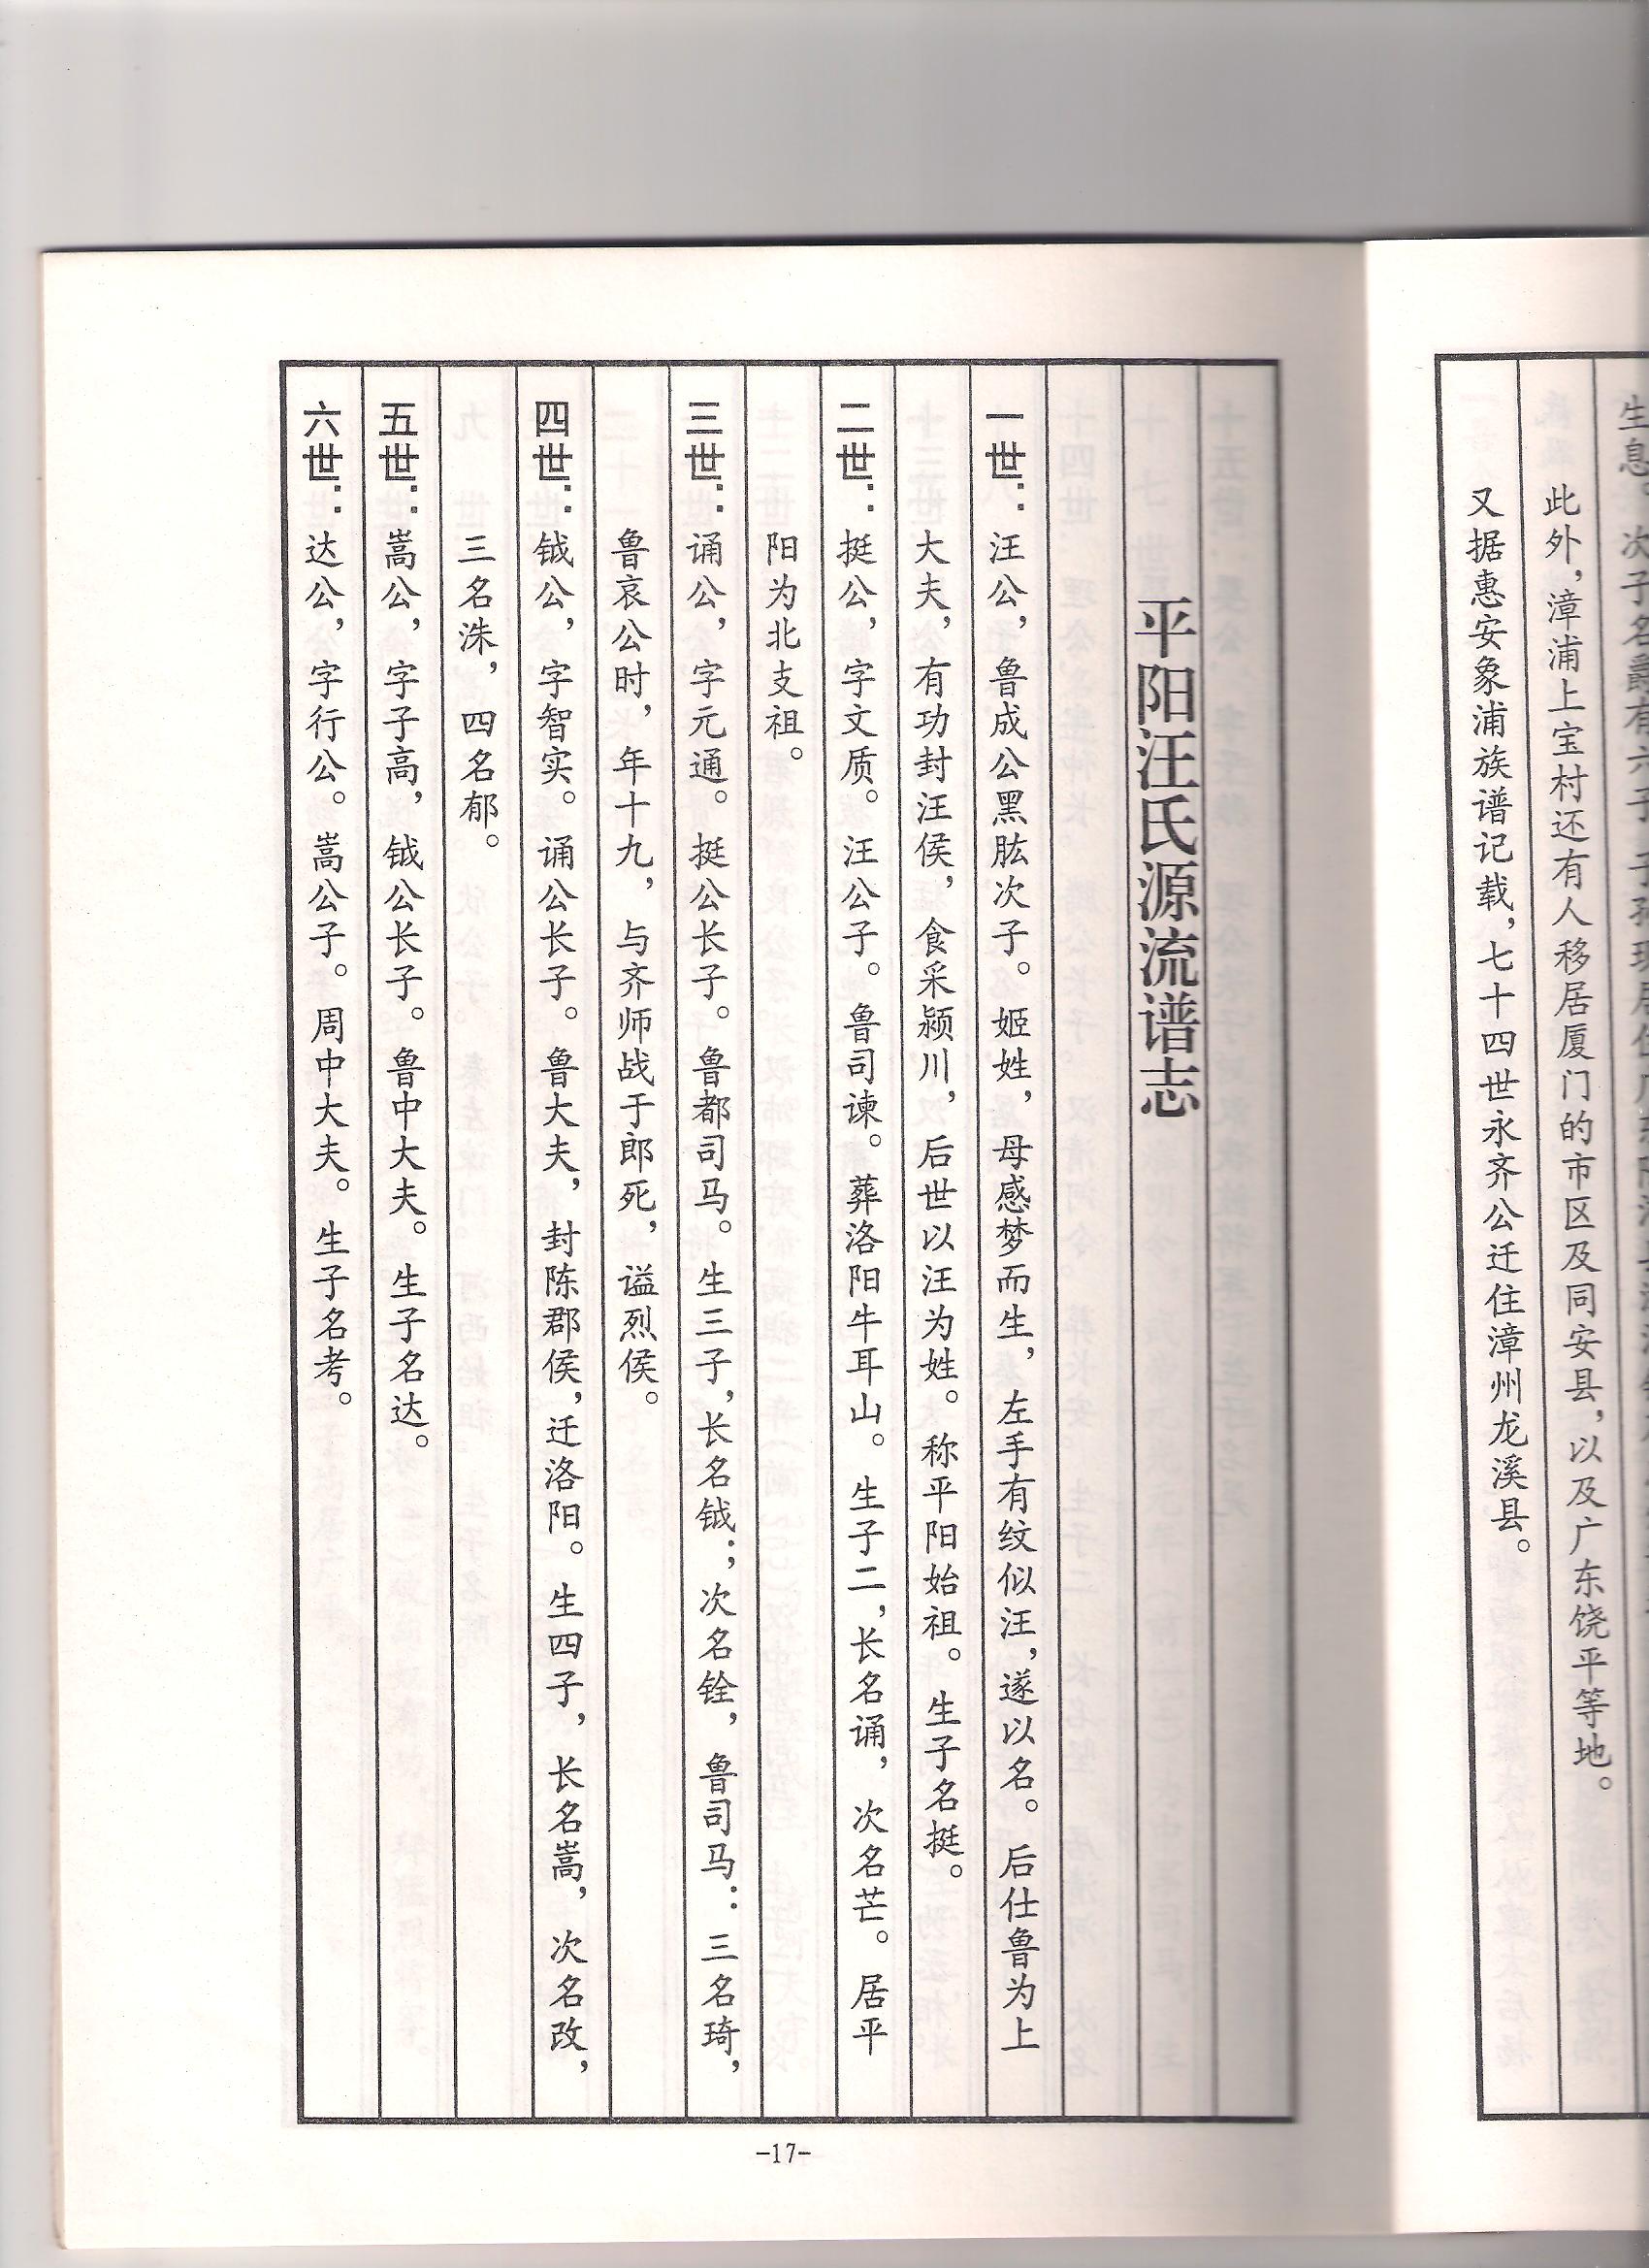 生息。次子名爵有六子
此外，漳浦上宝村还有人移居厦门的市区及同安县，以及广东饶平等地。
又据惠安象浦族谱记载，七十四世永齐公迁住漳州龙溪县。
平阳汪氏源流谱志
一世：汪公，鲁成公黑肱次子。姬姓，母感梦而生，左手有纹似汪，遂以名。后仕鲁为上
大夫，有功封汪侯，食采颍川，后世以汪为姓。称平阳始祖。生子名挺。
二世：挺公，字文质。汪公子。鲁司谏。葬洛阳牛耳山。生子二，长名诵，次名芒。居平
阳为北支祖。
三世：诵公，字元通。挺公长子。鲁都司马。生三子，长名钺；次名铨，鲁司马：三名琦，
鲁哀公时，年十九，与齐师战于郎死，谥烈侯。
四世：钺公，字智实。诵公长子。鲁大夫，封陈郡侯，迁洛阳。生四子，长名嵩，次名改，
三名洙，四名郁。
五世：嵩公，字子高，钺公长子。鲁中大夫。生子名达。
六世：达公，字行公。嵩公子。周中大夫。生子名考。
-17-